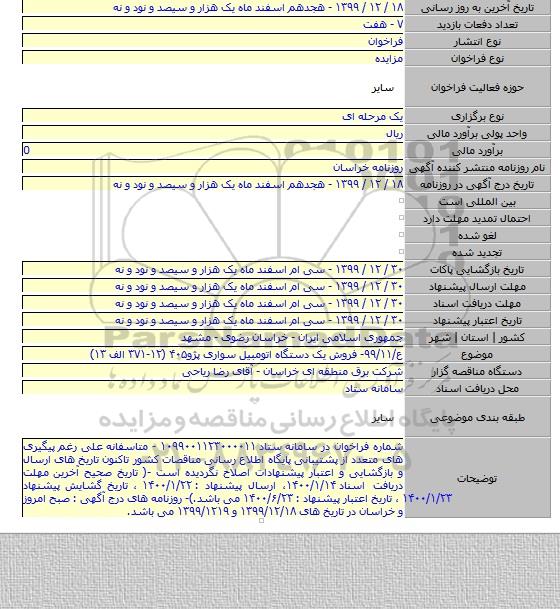 تاریخ آخرین به روز رسانی ۱۸ / ۱۲ / ۱۳۹۹ - هجدهم اسفند ماه یک هزار و سیصد و نود و نه
تعداد دفعات بازدید ۷ - هفت
نوع انتشار فراخوان
نوع فراخوان مزایده
حوزه فعالیت فراخوان سایر
نوع برگزاری یک مرحله ای
واحد پولی برآورد مالی ریال
برآورد مالی 0
نام روزنامه منتشر کننده آگهی روزنامه خراسان
تاریخ درج آگهی در روزنامه ۱۸ / ۱۲ / ۱۳۹۹ - هجدهم اسفند ماه یک هزار و سیصد و نود و نه
بین المللی است
احتمال تمدید مهلت دارد
لغو شده
تجدید شده
تاریخ بازگشایی پاکات ۳۰ / ۱۲ / ۱۳۹۹ - سی ام اسفند ماه یک هزار و سیصد و نود و نه
مهلت ارسال پیشنهاد ۳۰ / ۱۲ / ۱۳۹۹ - سی ام اسفند ماه یک هزار و سیصد و نود و نه
مهلت دریافت اسناد ۳۰ / ۱۲ / ۱۳۹۹ - سی ام اسفند ماه یک هزار و سیصد و نود و نه
تاریخ اعتبار پیشنهاد ۳۰ / ۱۲ / ۱۳۹۹ - سی ام اسفند ماه یک هزار و سیصد و نود و نه
کشور | استان | شهر جمهوری اسلامی ایران - خراسان رضوی - مشهد
موضوع ع/۹۹/۱۱- فروش یک دستگاه اتومبیل سواری پژو۴۰۵ (۱۲-۳۷۱ الف ۱۳)
دستگاه مناقصه گزار شرکت برق منطقه ای خراسان - آقای رضا ریاحی
محل دریافت اسناد سامانه ستاد
طبقه بندی موضوعی سایر
پایگاه اطلاع رسانی مناقصه ومزایده
توضیحات
شماره فراخوان در سامانه ستاد ۱۰۹۹۰۰۱۱۲۳۰۰۰۰۱۱ - متاسفانه علی رغم پیگیری
های متعدد از پشتیبانی پایگاه اطلاع رسانی مناقصات کشور تاکنون تاریخ های ارسال
و بازگشایی و اعتبار پیشنهادات اصلاح نگردیده است -( تاریخ صحیح آخرین مهلت
دریافت اسناد ۱۴۰۰/۱/۱۴، ارسال پیشنهاد : ۱۴۰۰/۱/۲۲ ، تاریخ گشایش پیشنهاد
۱۴۰۰/۱/۲۳ ، تاریخ اعتبار پیشنهاد : ۱۴۰۰/۶/۲۳ می باشد.)- روزنامه های درج آگهی : صبح امروز
و خراسان در تاریخ های ۱۳۹۹/۱۲/۱۸ و ۱۳۹۹/۱۲۱۹ می باشد.